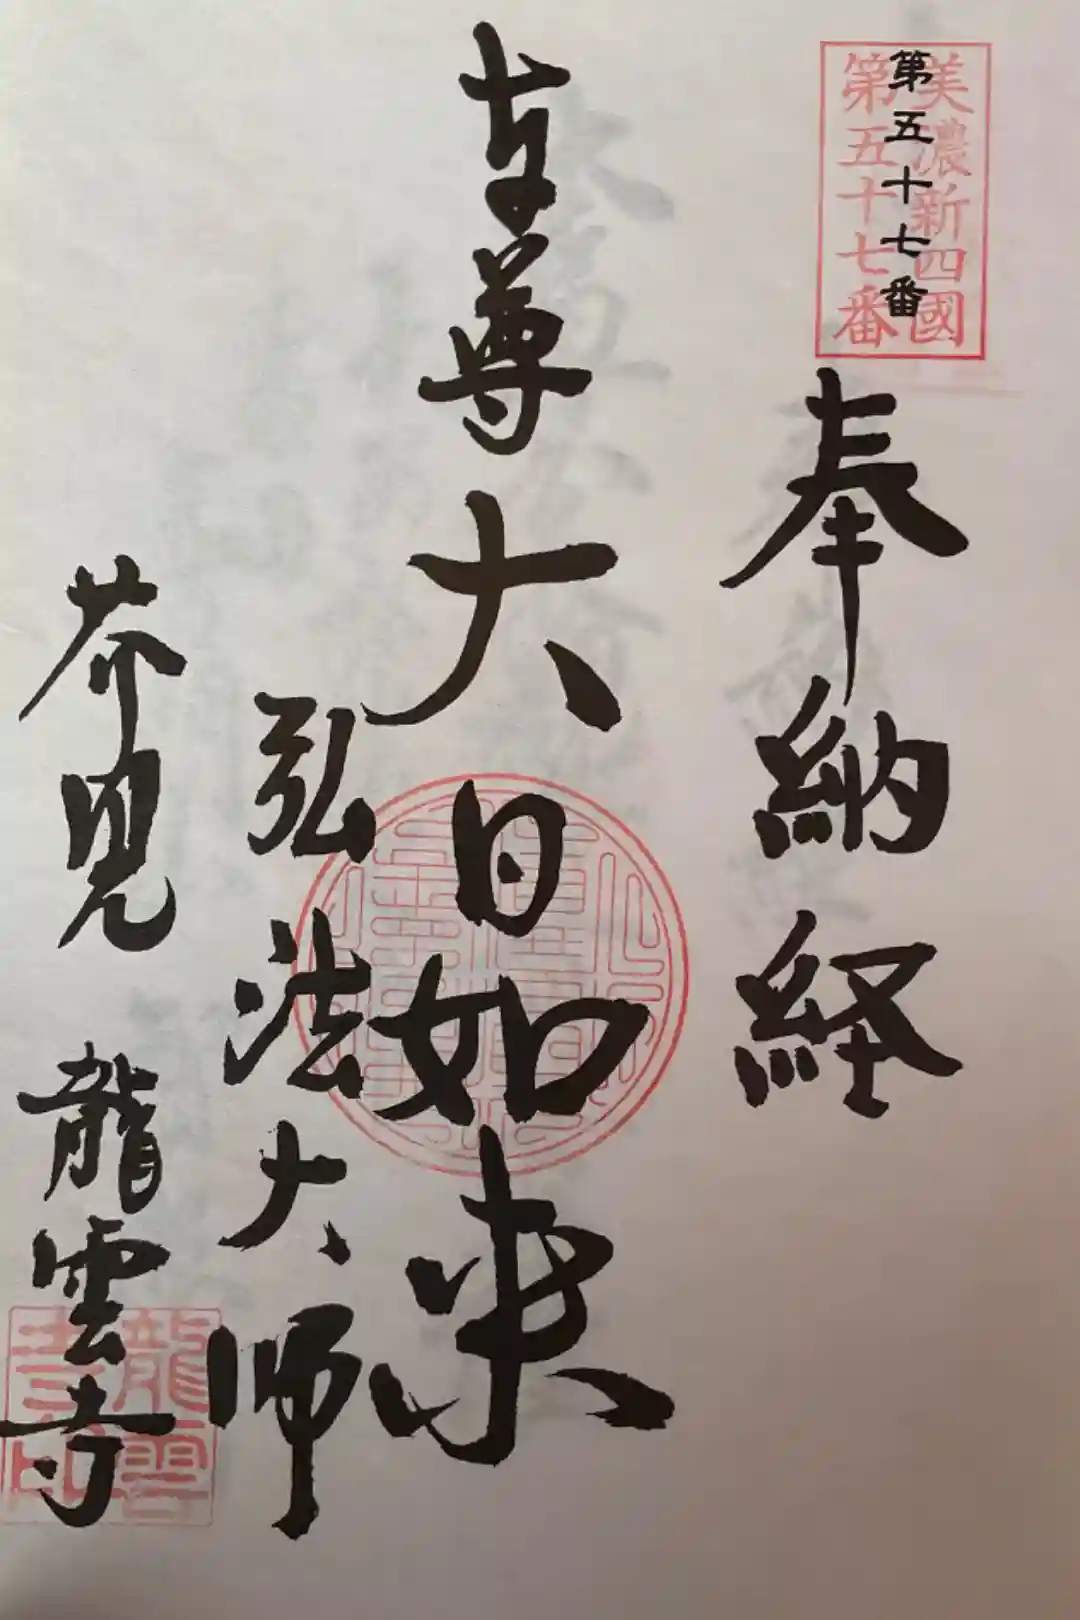 美濃新四國
第五十七番
第五十七番
奉納経
本尊大日如来
弘法大師
芥見 龍雲寺
龍雲
寺印